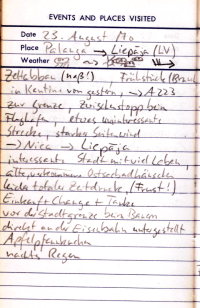 EVENTS AND PLACES VISITED
Date 23. August Mo
Place Palanga → Liepāja (LV)
Weather
Zeltabbau (naß!), Frühstück
in Kantine von gestern, → A223
zur Grenze, Zwischenstopp beim
Flughafen, etwas uninteressante
Strecke, starker Seitenwind
→ Nica → Liepāja
interessante Stadt mit viel Leben,
alte, Ostseebadhäuschen
leider totaler Zeitdruck, (Frust!)
Einkauf + Change + Tanke
vor der Stadtgrenze beim Bauern
direkt an der Eisenbahn untergestellt
Apfelpfannkuchen
nachts Regen